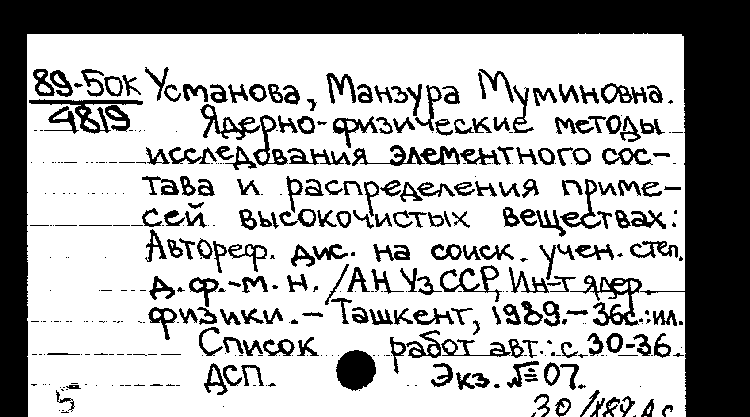 89-5ок Усманова, Манзура Муминовна.
4819 Ядерно-физические методы
исследования элементного сос-
тава и распределения приме-
сей высокочистых веществах:
Автореф. дис. на соиск. учен. степ.
д. ф.-м. н. /АН УзССР, Ин-т ядер.
физики. – Ташкент, 1989. – 36с.: ил.
Список работ авт.: с. 30-36.
ДСП. Экз. № 07.
5